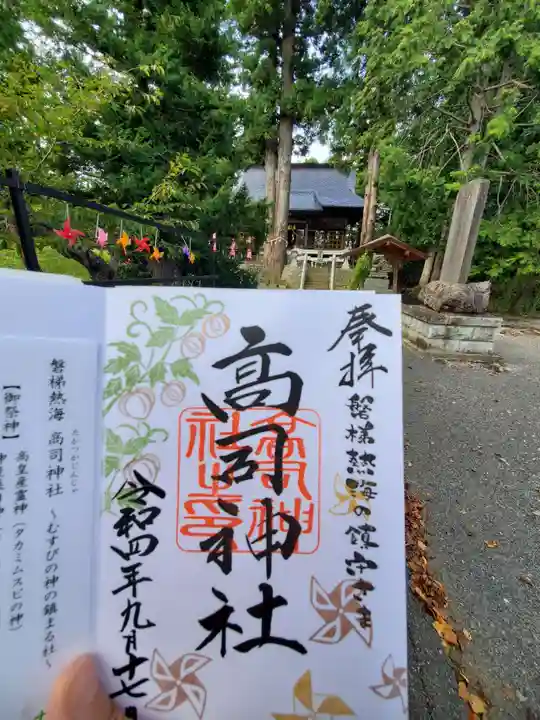 奉拝
磐梯熱海の鎮守さま
高司神社
令和四年九月十七日
磐梯熱海 高司神社 ～むすびの神の鎮まる社～
たかつかじんじゃ
【御祭神】
高皇産霊神（タカミムスビの神）